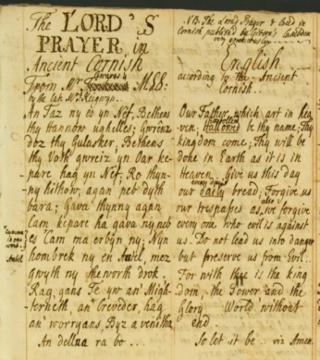 The LORD'S
PRAYER in
Ancient Cornish
From Mr MSS:
by the late Mr Keigwyn.
An Taz ny es yn Nef, Bethens
thy hannow ughelles; gwrênz
doz thy Gulasker; Bethens
thy Voth gwreiz yn Oar ke-
pare hag yn Nef. Ro thyn-
ny hithow, agan peb dyth
bara; gava thynny agan
Cam kepare ha gava ny neb
es Cam ma erbyn ny; Nyn
hombrek ny en Antel, mez
gwyth ny theworth drok.
Rag gans Te yw an Migh-
terneth, an Creveder, hag
an worryans Byz a venitha.
An dellna ra bo ...
N.B. The Lord's Prayer & Creed in
Cornish
English
according to the Ancient
Cornish.
Our Father, which art in hea-
ven, Hallowed be thy name; Thy
kingdom come; Thy will be
done in Earth as it is in
Heaven. Give us this day
every day's
our daily bread; Forgive us
our trespasses as, we forgive
every one who evil is against
us. Do not lead us into danger
but preserve us from Evil:
For with thee is the king
dom, the Power and the
Glory World without
end
So let it be .. via Amen.